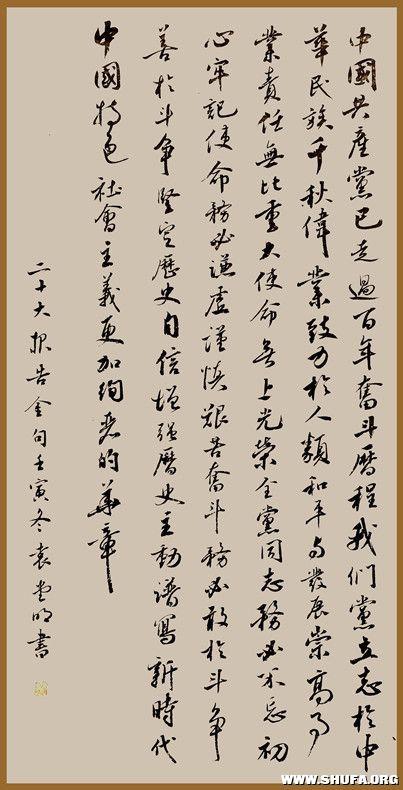 中國共產黨已走過百年奮斗曆程我们黨立志於中
華民族千秋偉業致力於人類和平与發展崇高事
業責任無比重大使命無上光榮全黨同志務必不忘初
心牢記使命務必谦虚谨慎艱苦奮斗務必敢於斗争
善於斗争堅定歷史自信增强曆史主動譜寫新時代
中國特色社會主義更加绚丽的華章
二十大报告金句壬寅冬袁堂明書
WWW.SHUFA.ORG